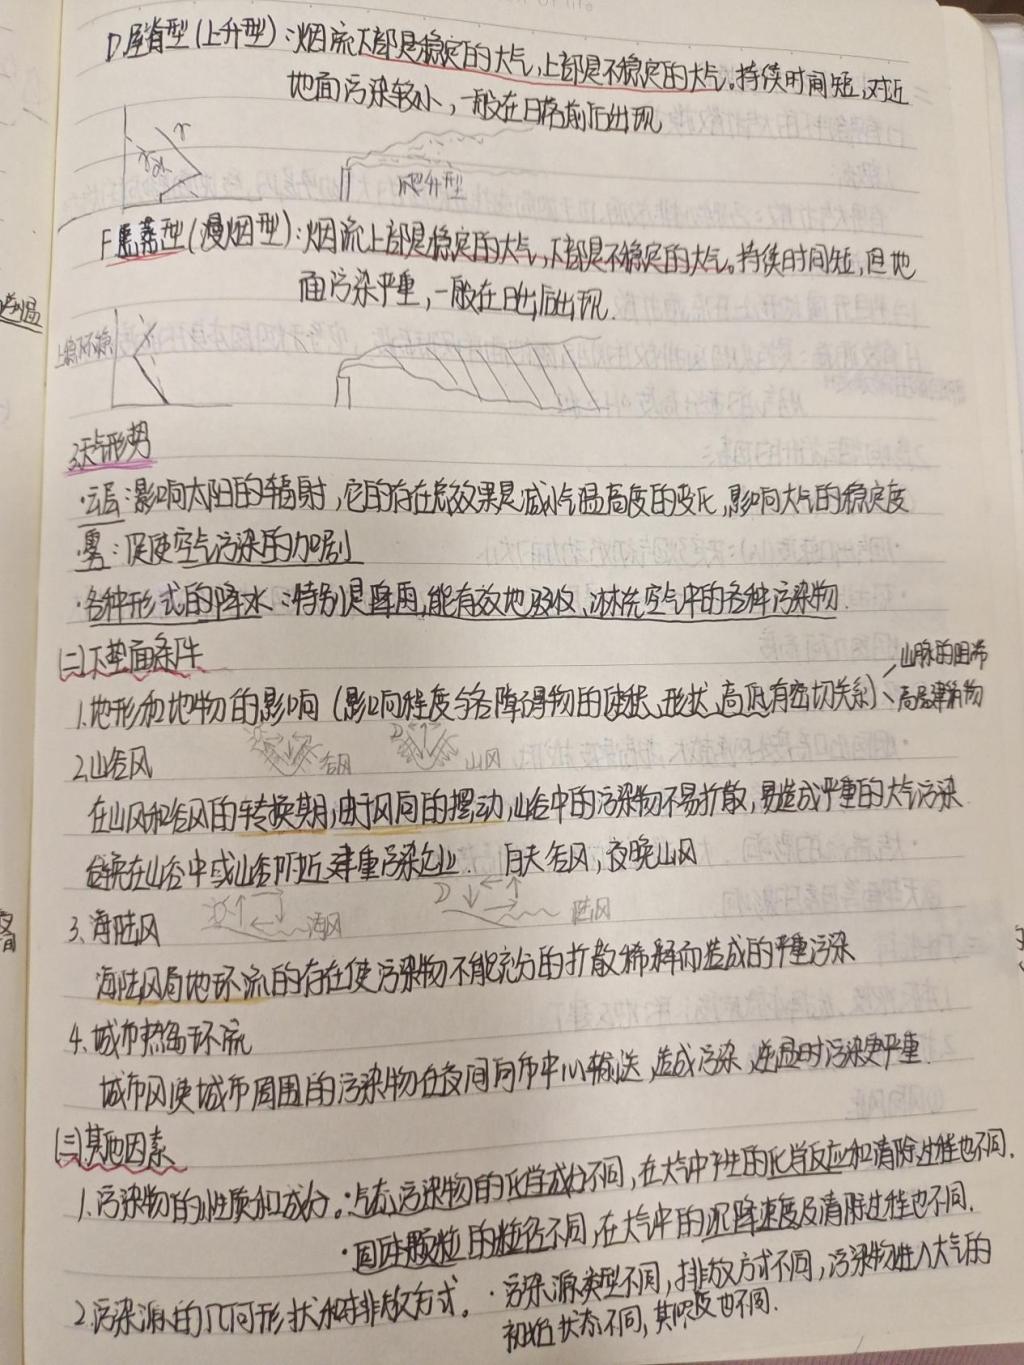 D 屋脊型(上升型):烟流下部是稳定的大气,上部是不稳定的大气。持续时间短,对近
地面污染较小,一般在日落前后出现
γ
γd
爬升型
F 熏蒸型(漫烟型):烟流上部是稳定的大气,下部是不稳定的大气。持续时间短,但地
面污染严重,一般在日出后出现.
逆温
上稳下不稳
3.天气形势
·云层:影响太阳的辐射,它的存在总效果是减小气温高度的变化,影响大气的稳定度
雾:促使空气污染的加剧
·各种形式的降水:特别是降雨,能有效地吸收、淋洗空气中的各种污染物.
(二)下垫面条件
山脉的围布
1.地形和地物的影响(影响程度与各障碍物的体积、形状、高低有密切关系)
高层建筑物
2.山谷风
谷风
山风
在山风和谷风的转换期,由于风向的摆动,山谷中的污染物不易扩散,易造成严重的大气污染
避免在山谷中或山谷附近建重污染企业. 白天谷风,夜晚山风
3.海陆风
海风
陆风
夜间
海陆风局地环流的存在使污染物不能充分的扩散稀释而造成的严重污染
4.城市热岛环流
城市风使城市周围的污染物在夜间向市中心输送,造成污染,逆温时污染更严重.
(三)其他因素
1.污染物的性质和成分。·气态污染物的化学成分不同,在大气中产生的化学反应和清除过程也不同.
·固体颗粒的粒径不同,在大气中的沉降速度及清除过程也不同.
2.污染源的几何形状和排放方式。·污染源类型不同,排放方式不同,污染物进入大气的
初始状态不同,其浓度也不同.